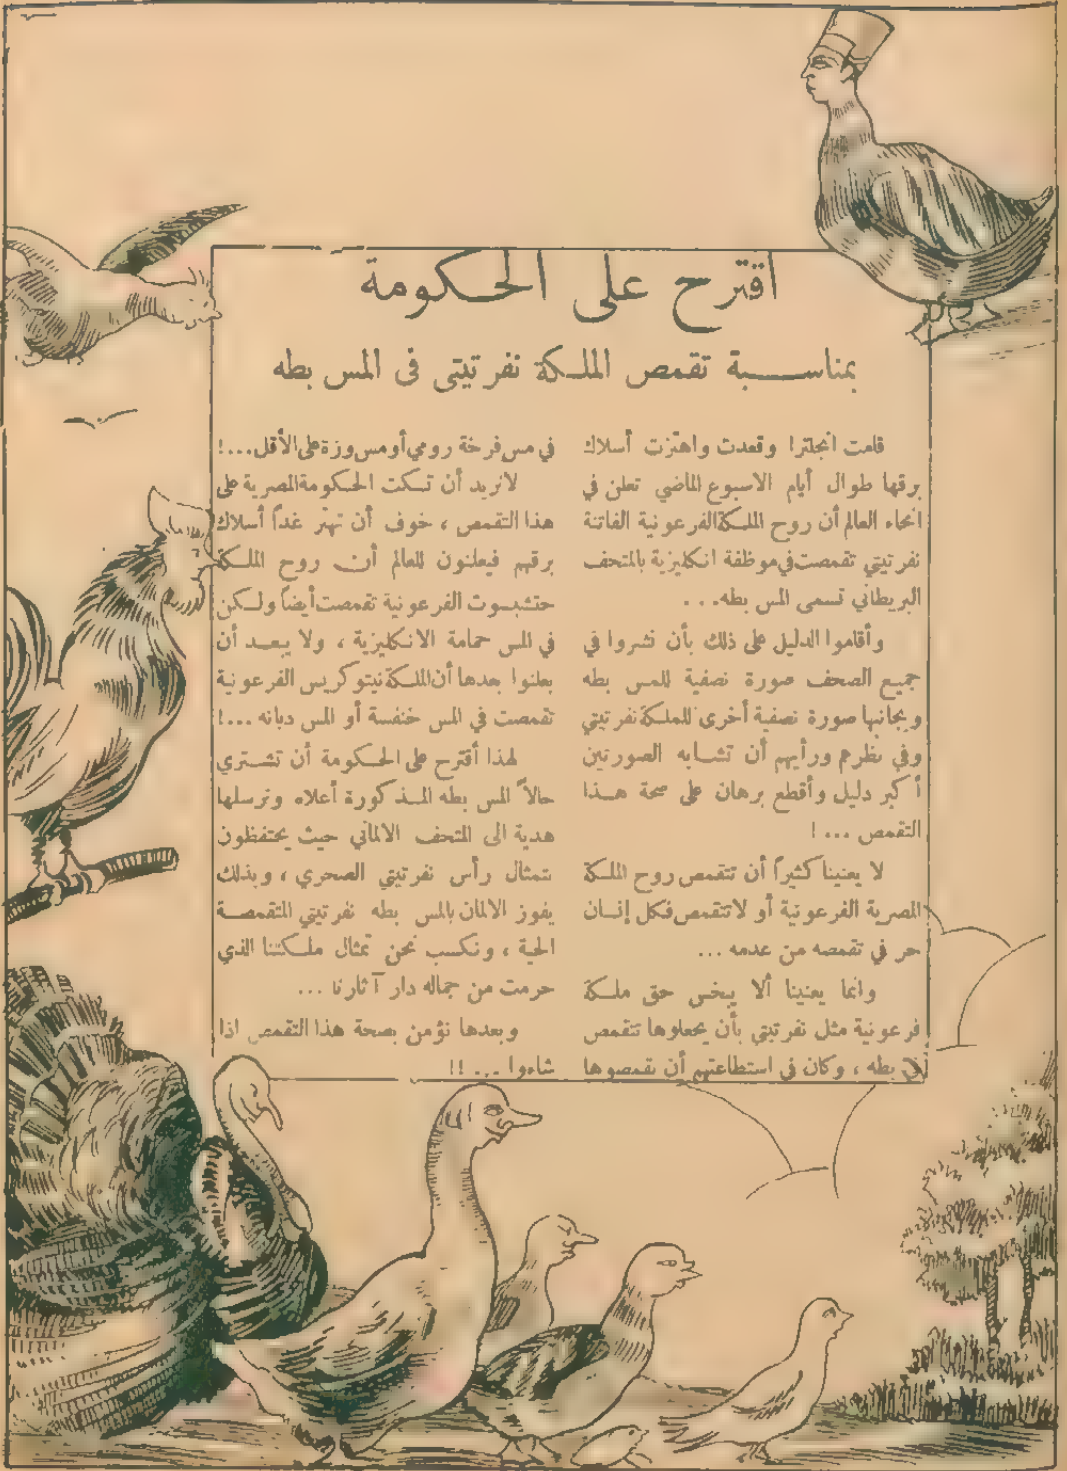 أقترح على الحكومة
بمناسبة تقمص الملكة نفرتيتى فى المس بطه
قامت انجلترا وقعدت واهتزت أسلاك
برقها طوال أيام الاسبوع الماضي تعلن في
انحاء العالم أن روح الملكة الفرعونية الفاتنة
نفرتيتي تقمصت في موظفة انكليزية بالمتحف
البريطاني تسمى المس بطه...
وأقاموا الدليل على ذلك بأن نشروا في
جميع الصحف صورة نصفية للمس بطه
وبجانبها صورة نصفية أخرى للملكة نفرتيتي
وفي نظرهم ورأيهم أن تشابه الصورتين
أكبر دليل وأقطع برهان على صحة هذا
التقمص ... !
لا يعنينا كثيراً أن تتقمص روح الملكة
المصرية الفرعونية أو لا تتقمص فكل إنسان
حر في تقمصه من عدمه ...
وانما يعنينا ألا يبخس حق ملكة
فرعونية مثل نفرتيتي بأن يجعلوها تتقمص
في بطه ، وكان في استطاعتهم أن يقمصوها
في مس فرخة رومي أو مس وزة على الأقل...!
لا نريد أن تسكت الحكومة المصرية على
هذا التقمص ، خوف أن تهتز غداً أسلاك
برقهم فيعلنون للعالم أن روح الملكة
حتشبسوت الفرعونية تقمصت أيضاً ولكن
في المس حمامة الانكليزية ، ولا يبعد أن
يعلنوا بعدها أن الملكة نيتوكريس الفرعونية
تقمصت في المس خنفسة أو المس دبانه ...!
لهذا أقترح على الحكومة أن تشتري
حالاً المس بطه المذكورة أعلاه وترسلها
هدية الى المتحف الالماني حيث يحتفظون
بتمثال رأس نفرتيتي الصحري ، وبذلك
يفوز الالمان بالمس بطه نفرتيتي المتقمصة
الحية ، ونكسب نحن تمثال ملكتنا الذي
حرمت من جماله دار آثارنا ...
وبعدها نؤمن بصحة هذا التقمص اذا
شاءوا ... !!